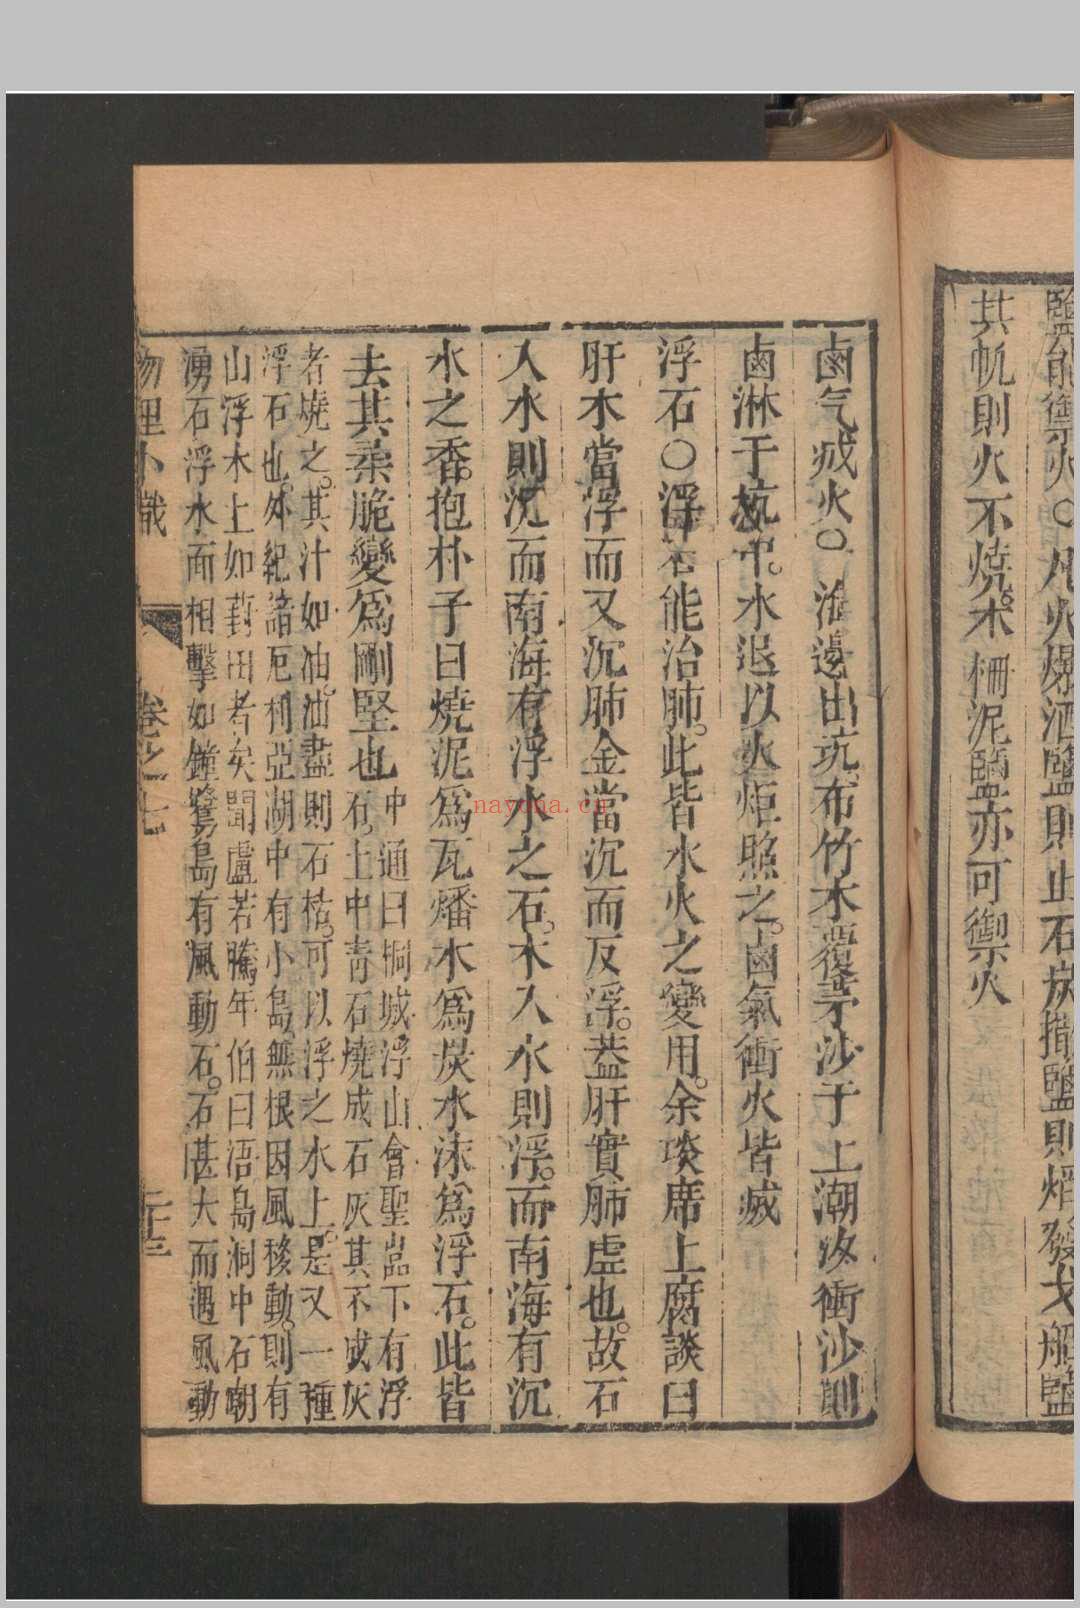 鹽能禦火○凡火爆酒鹽則止石炭撒鹽則焰發戈船鹽
其帆則火不燒木柵泥鹽亦可禦火
鹵气烕火○海邊出坑布竹木覆茅沙于上潮汐衝沙則
鹵淋于坑中水退以火炬照之鹵氣衝火皆滅
浮石○浮石能治肺此皆水火之變用余琰席上腐談曰
肝木當浮而又沉肺金當沉而反浮葢肝實肺虛也故石
入水則沉而南海有浮水之石木入水則浮而南海有沉
水之香抱朴子曰燒泥爲瓦燔木爲炭水沫爲浮石此皆
去其柔脆變爲剛堅也
中通曰桐城浮山會聖岩下有浮
石上中青石燒成石灰其不成灰
者燒之其汁如油油盡則石枯可以浮之水上是又一種
浮石也外紀諳厄利亞湖中有小島無根因風移動則有
山浮水上如葑田者矣聞盧若騰年伯曰浯島洞中石朝
湧石浮水面相擊如鐘鷺島有風動石石甚大而遇風動
物理小識
卷之七
二十三
nayona.cn